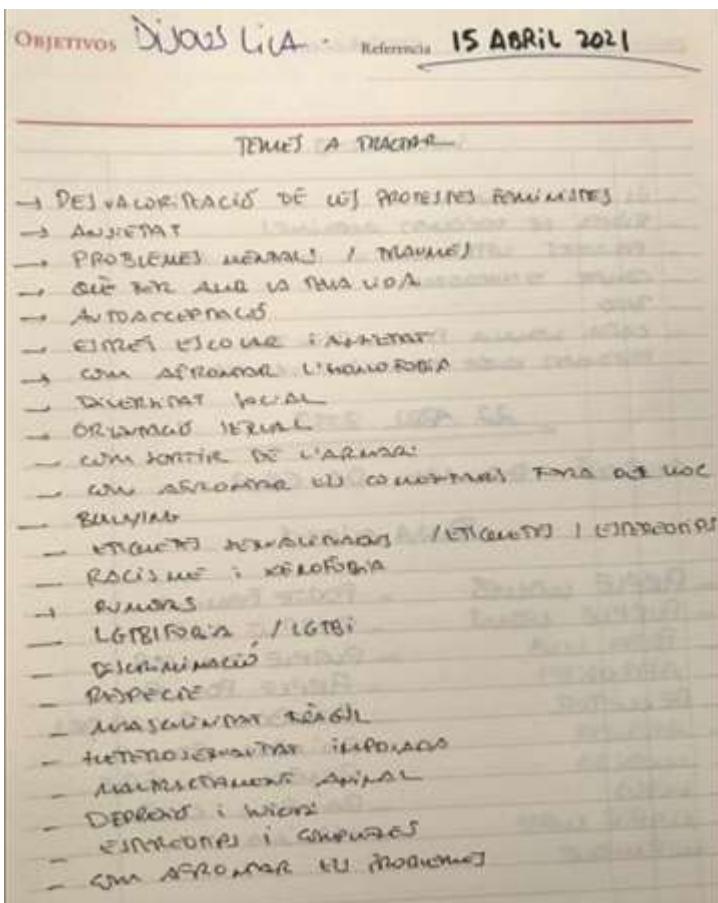 OBJETIVOS DIJOUS LILA. Referencia 15 ABRIL 2021
TEMES A TRACTAR
→ DESVALORITZACIÓ DE LES PROTESTES FEMINISTES
→ ANSIETAT
→ PROBLEMES MENTALS / TRAUMES
→ QUÈ FER AMB LA MEVA VIDA
→ AUTOACCEPTACIÓ
→ ESTRÉS ESCOLAR i ANSIETAT
→ COM AFRONTAR L'HOMOFÒBIA
— DIVERSITAT SOCIAL
— ORIENTACIÓ SEXUAL
— COM SORTIR DE L'ARMARI
— COM AFRONTAR ELS COMENTARIS FORA DE LLOC
— BULLYING
— ETIQUETES SEXUALITZADES / ETIQUETES I ESTEREOTIPS
— RACISME i XENOFÒBIA
→ RUMORS
— LGTBIFÒBIA / LGTBI
— DISCRIMINACIÓ
— RESPECTE
— MASCULINITAT FRÀGIL
— HETEROSEXUALITAT IMPOSADA
— MALTRACTAMENT ANIMAL
— DEPRESSIÓ i SUÏCIDI
— ESTEREOTIPS i COMPLEXES
— COM AFRONTAR ELS PROBLEMES